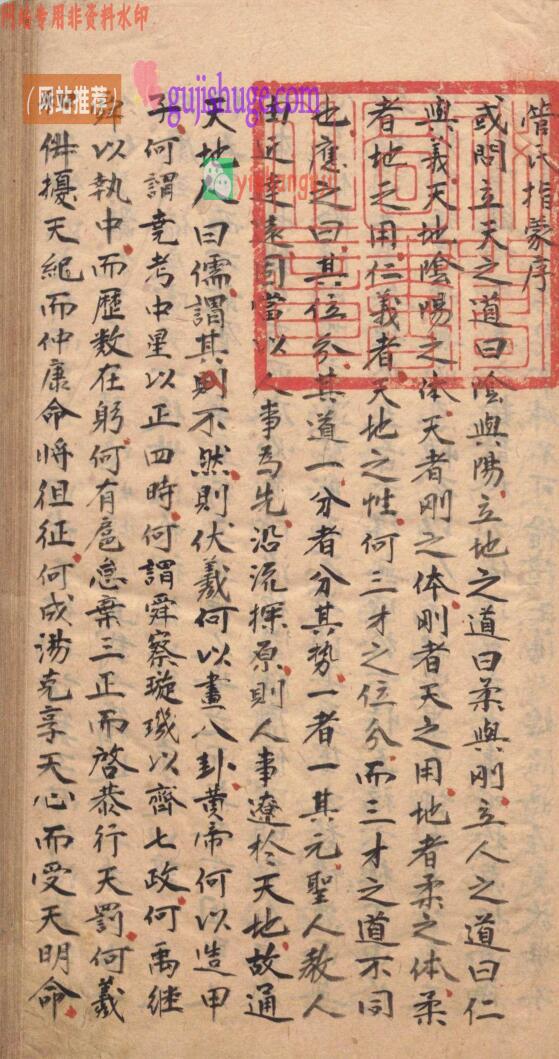 网站专用非资料水印
（网站推荐）
gujishuge.com
管氏指蒙序
或問立天之道曰陰與陽立地之道曰柔與剛立人之道曰仁
與義天地陰陽之体天者刚之体刚者天之用地者柔之体柔
者地之用仁義者天地之性何三才之位分而三才之道不同
也應之曰其位分其道一分者分其势一者一其元聖人教人
由近達遠固當以人事為先沿流探原則人事遼於天地故通
天地人曰儒謂其則不然則伏羲何以畫八卦黄帝何以造甲
子何謂堯考中星以正四時何謂舜察璇璣以齊七政何禹继
舜以執中而歷数在躬何有扈怠棄三正而啓恭行天罰何羲
佛擾天紀而仲康命将徂征何成湯克享天心而受天明命